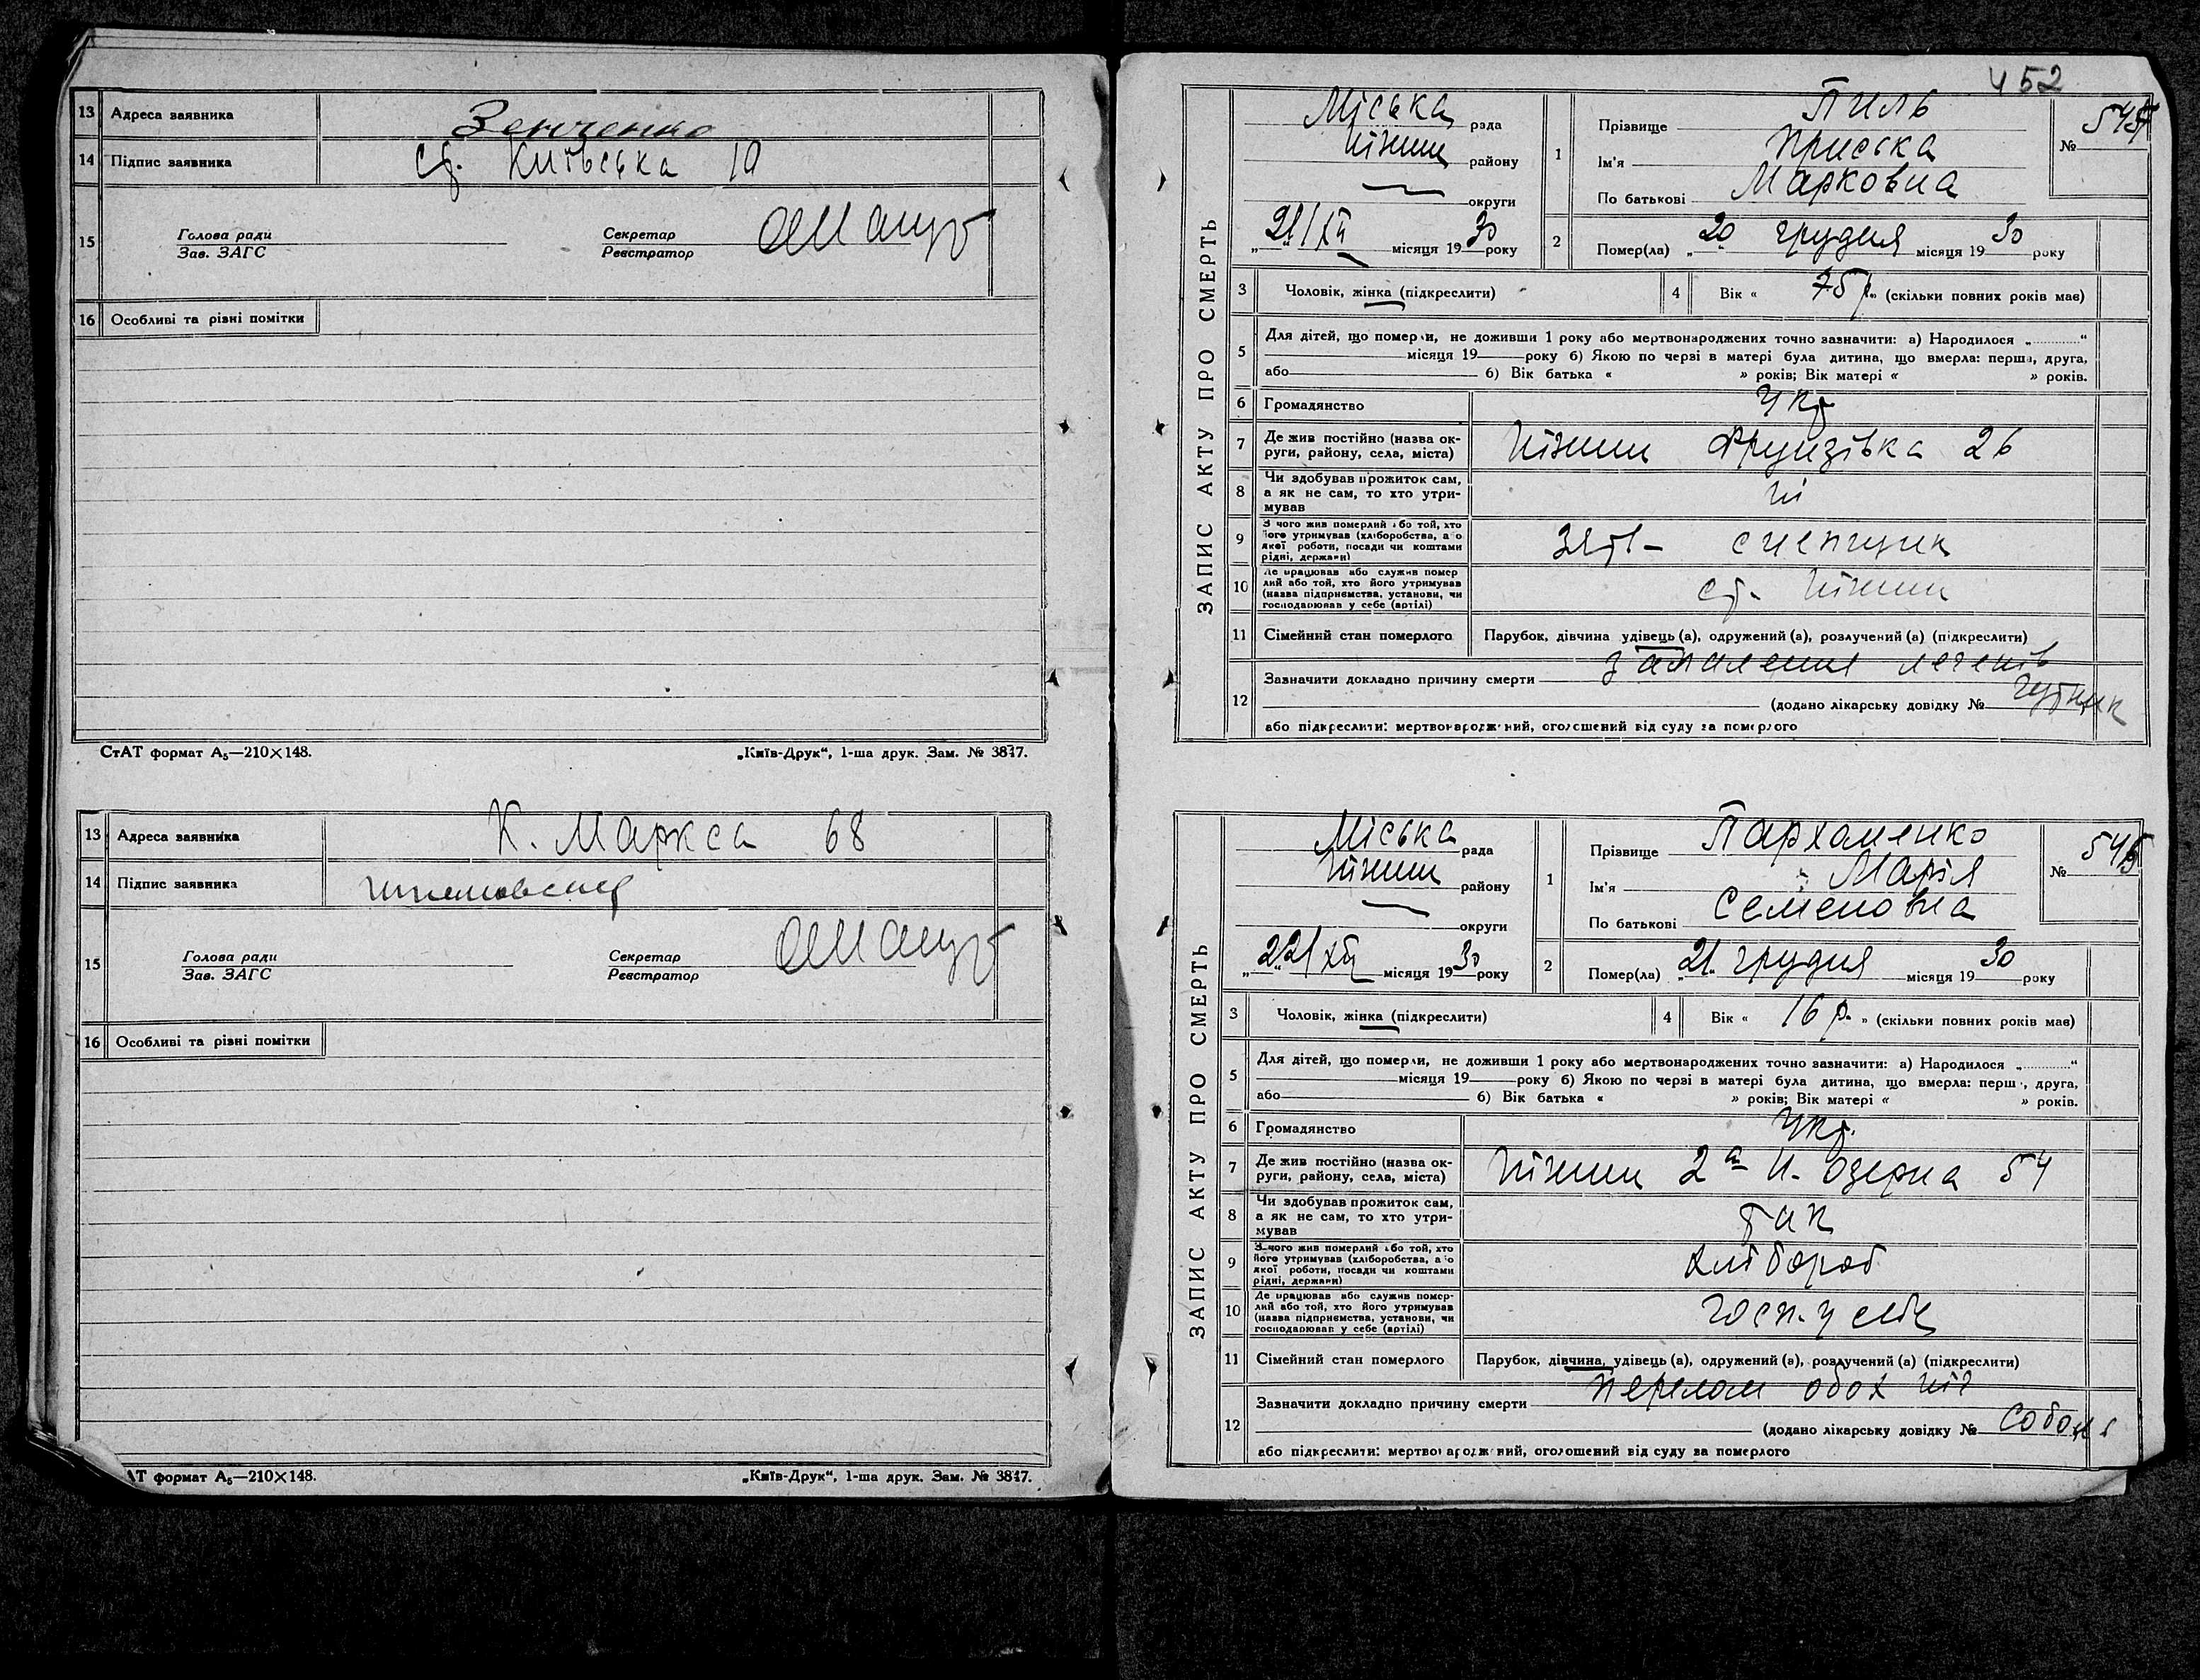 13 Адреса заявника Зенченко
14 Підпис заявника ст. Київська 10
15 Голова ради
Зав. ЗАГС
Секретар
Реєстратор
16 Особливі та різні помітки
СтАТ формат А₅—210×148. „Київ-Друк“, 1-ша друк. Зам. № 3847.
13 Адреса заявника К. Маркса 68
14 Підпис заявника
15 Голова ради
Зав. ЗАГС
Секретар
Реєстратор
16 Особливі та різні помітки
АТ формат А₅—210×148. „Київ-Друк“, 1-ша друк. Зам. № 3847.
452
ЗАПИС АКТУ ПРО СМЕРТЬ
Міська рада
Ніжин району
округи
„21/XII місяця 1930 року
1 Прізвище Пиль
Ім'я Приська
По батькові Марковна
№ 545
2 Помер(ла) „20 грудня місяця 1930 року
3 Чоловік, жінка (підкреслити)
4 Вік « 75 р. » (скільки повних років має)
5 Для дітей, що померли, не доживши 1 року або мертвонароджених точно зазначити: а) Народилося „ “
місяця 19 року б) Якою по черзі в матері була дитина, що вмерла: перша, друга,
або 6) Вік батька « » років; Вік матері « » років.
6 Громадянство Укр
7 Де жив постійно (назва округи, району, села, міста) Ніжин Фрунзівка 26
8 Чи здобував прожиток сам, а як не сам, то хто утримував Ні
9 З чого жив померлий або той, хто його утримував (хліборобства, або якої роботи, посади чи коштами рідні, держави) зять – счепщик
10 Де працював або служив померлий або той, хто його утримував (назва підприємства, установи, чи господарював у себе (артілі) ст. Ніжин
11 Сімейний стан померлого Парубок, дівчина удівець (а), одружений (а), розлучений (а) (підкреслити)
12 Зазначити докладно причину смерти запалення легенів
(додано лікарську довідку №
або підкреслити: мертвонароджений, оголошений від суду за померлого
ЗАПИС АКТУ ПРО СМЕРТЬ
Міська рада
Ніжин району
округи
„22/XII місяця 1930 року
1 Прізвище Пархоменко
Ім'я Марія
По батькові Семеновна
№ 546
2 Помер(ла) „21 грудня місяця 1930 року
3 Чоловік, жінка (підкреслити)
4 Вік « 16 р. » (скільки повних років має)
5 Для дітей, що померли, не доживши 1 року або мертвонароджених точно зазначити: а) Народилося „ “
місяця 19 року б) Якою по черзі в матері була дитина, що вмерла: перш , друга,
або 6) Вік батька « » років; Вік матері « » років.
6 Громадянство Укр.
7 Де жив постійно (назва округи, району, села, міста) Ніжин 2а Н. Озерна 54
8 Чи здобував прожиток сам, а як не сам, то хто утримував так
9 З чого жив померлий або той, хто його утримував (хліборобства, або якої роботи, посади чи коштами рідні, держави) хлібороб
10 Де працював або служив померлий або той, хто його утримував (назва підприємства, установи, чи господарював у себе (артілі) госп. у себе
11 Сімейний стан померлого Парубок, дівчина, удівець (а), одружений (а), розлучений (а) (підкреслити)
12 Зазначити докладно причину смерти перелом обох ніг
(додано лікарську довідку №
або підкреслити: мертвонароджений, оголошений від суду за померлого